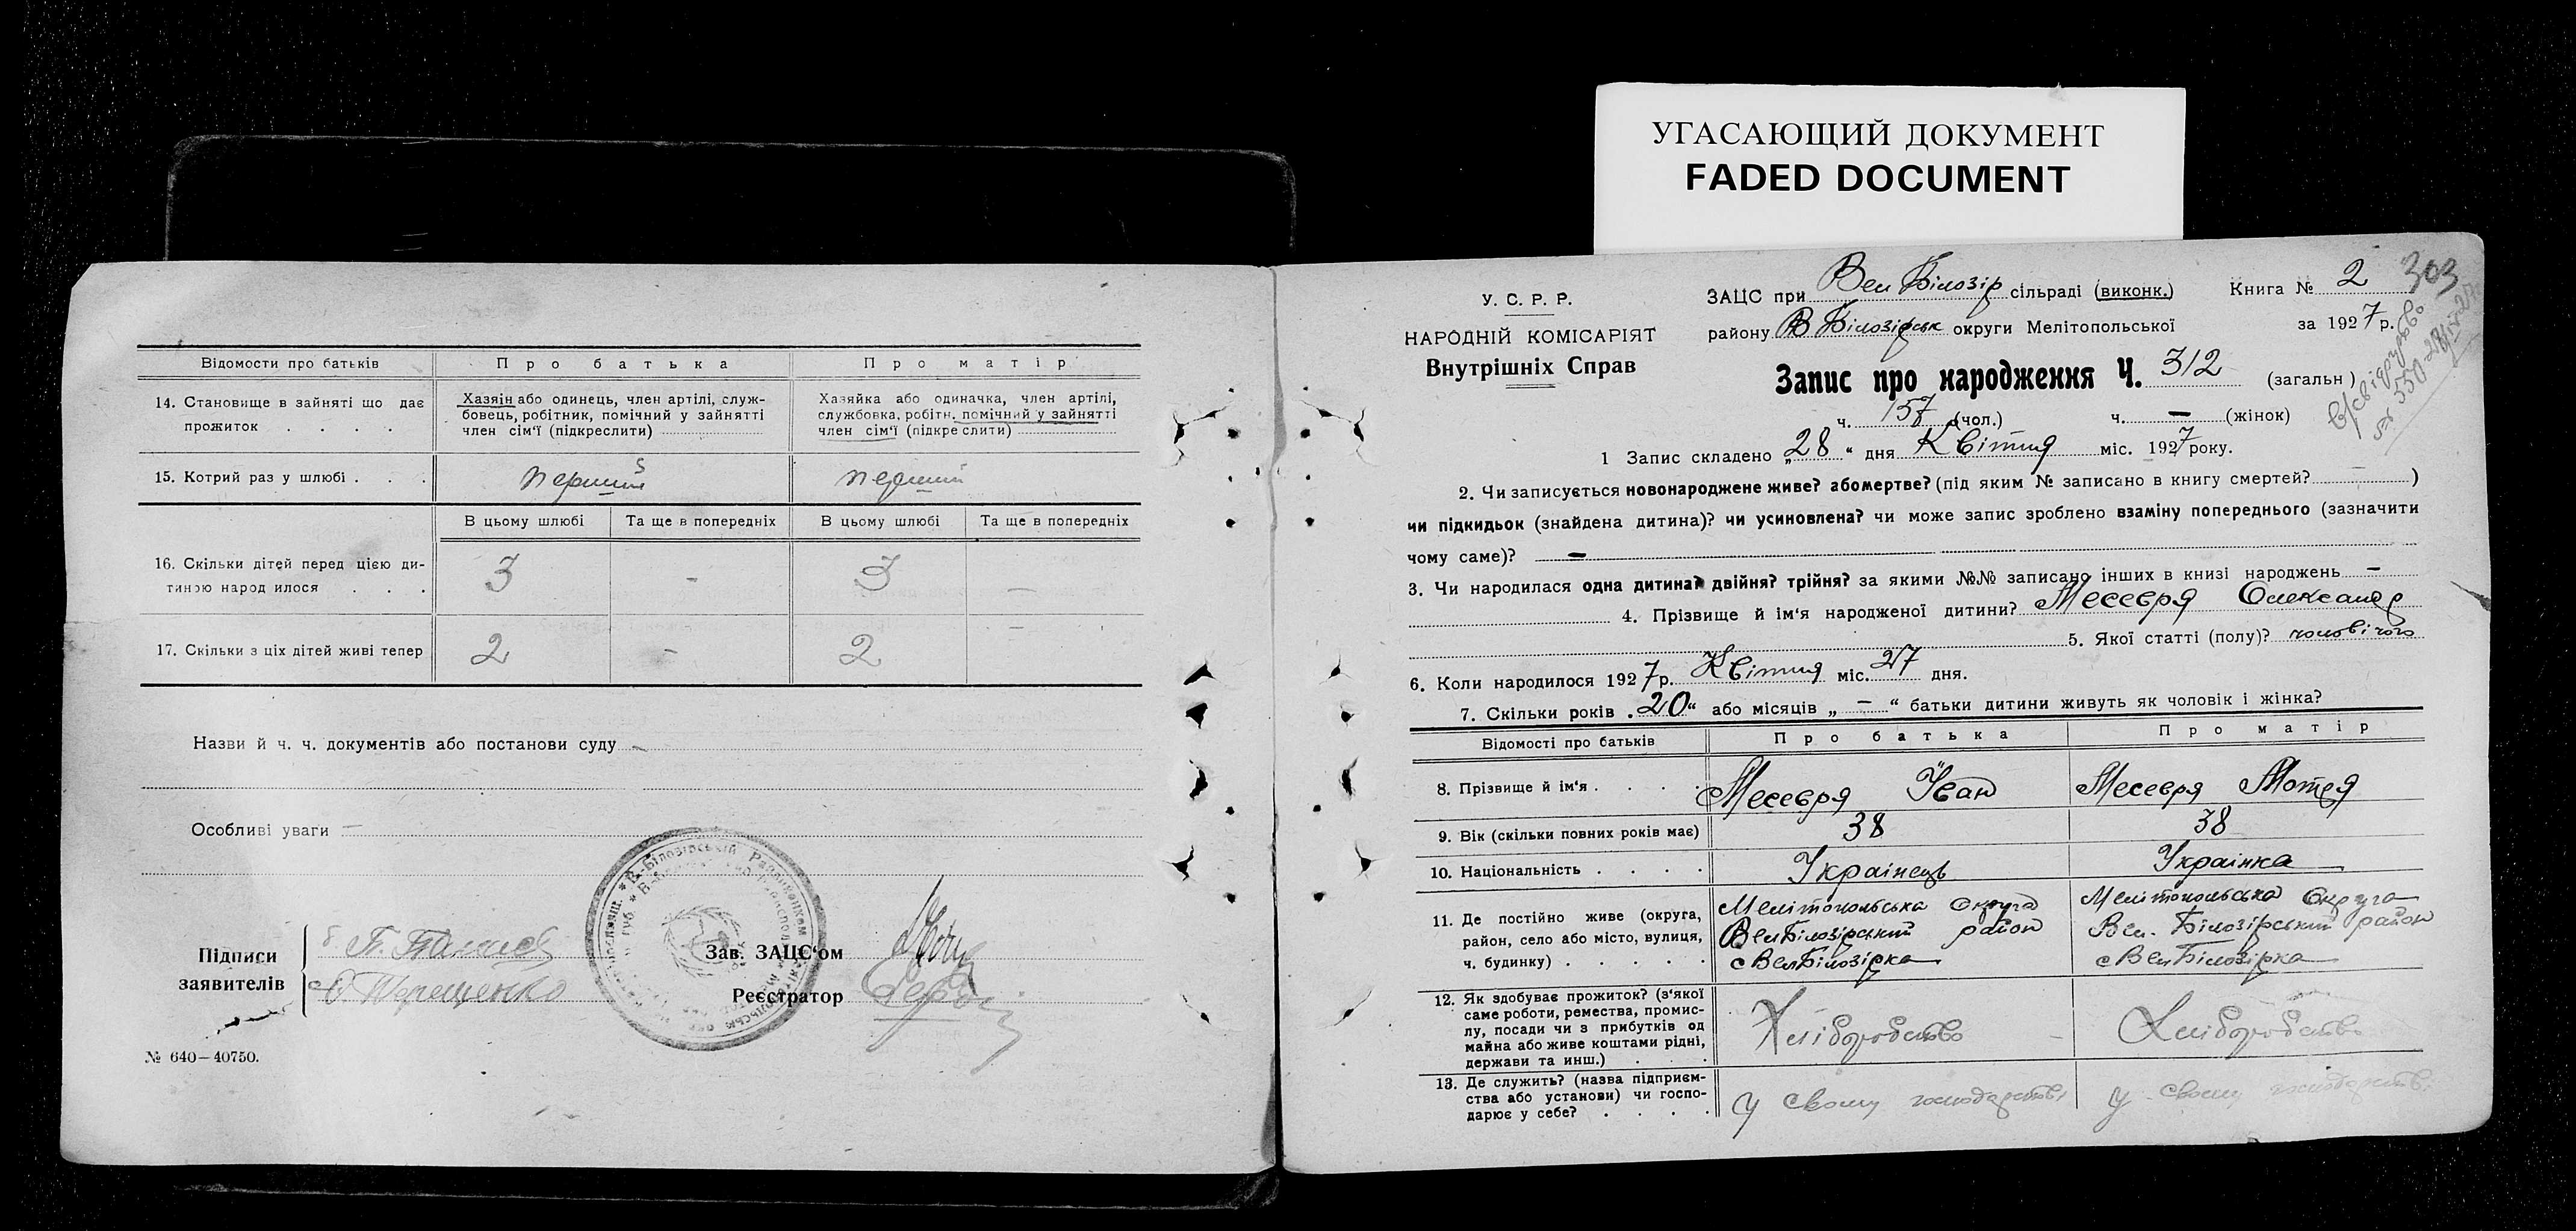 УГАСАЮЩИЙ ДОКУМЕНТ
FADED DOCUMENT
Відомости про батьків Про батька Про матір
14. Становище в зайняті що дає прожиток . . . .
Хазяін або одинець, член артілі, служ-
бовець, робітник, помічний у зайнятті
член сім'ї (підкреслити)
Хазяйка або одиначка, член артілі,
службовка, робітн. помічний у зайнятті
член сім'ї (підкреслити)
15. Котрий раз у шлюбі . . . перший перший
В цьому шлюбі Та ще в попередніх В цьому шлюбі Та ще в попередніх
16. Скільки дітей перед цією ди-
тиною народилося . . . 3 - 3 —
17. Скільки з ціх дітей живі тепер 2 - 2 —
Назви й ч. ч. документів або постанови суду —
Особливі уваги —
Підписи
заявителів
Терещенко
Зав. ЗАЦС'ом
Реєстратор
№ 640—40750.
У. С. Р. Р.
НАРОДНІЙ КОМІСАРІЯТ
Внутрішніх Справ
ЗАЦС при Вел Білозір сільраді (виконк.) Книга № 2 303
району В Білозірськ округи Мелітопольської за 1927 р.
Запис про народження Ч. 312 (загальн)
ч. 157 (чол.) ч. — (жінок)
1 Запис складено „28“ дня Квітня міс. 1927 року.
2. Чи записується новонароджене живе? або мертве? (під яким № записано в книгу смертей? — )
чи підкидьок (знайдена дитина)? чи усиновлена? чи може запис зроблено взаміну попереднього (зазначити
чому саме)? —
3. Чи народилася одна дитина? двійня? трійня? за якими №№ записано інших в книзі народжень —
4. Прізвище й ім'я народженої дитини? Месевря Олександр
5. Якої статті (полу)? чоловічого
6. Коли народилося 1927 р. Квітня міс. 27 дня.
7. Скільки років „20“ або місяців „—“ батьки дитини живуть як чоловік і жінка?
Відомості про батьків Про батька Про матір
8. Прізвище й ім'я . . . . Месевря Іван Месевря Мотря
9. Вік (скільки повних років має) 38 38
10. Національність . . . . Українець Українка
11. Де постійно живе (округа,
район, село або місто, вулиця,
ч. будинку) . . . . .
Мелітопольська Округа
Вел Білозірський район
с Вел Білозірка
Мелітопольська Округа
Вел. Білозірський район
с Вел Білозірка
12. Як здобуває прожиток? (з'якої
саме роботи, ремества, промис-
лу, посади чи з прибутків од
майна або живе коштами рідні,
держави та инш.) . . .
Хліборобство Хліборобство
13. Де служить? (назва підприєм-
ства або установи) чи госпо-
дарює у себе? . . . .
у своему господарстві у своему господарстві